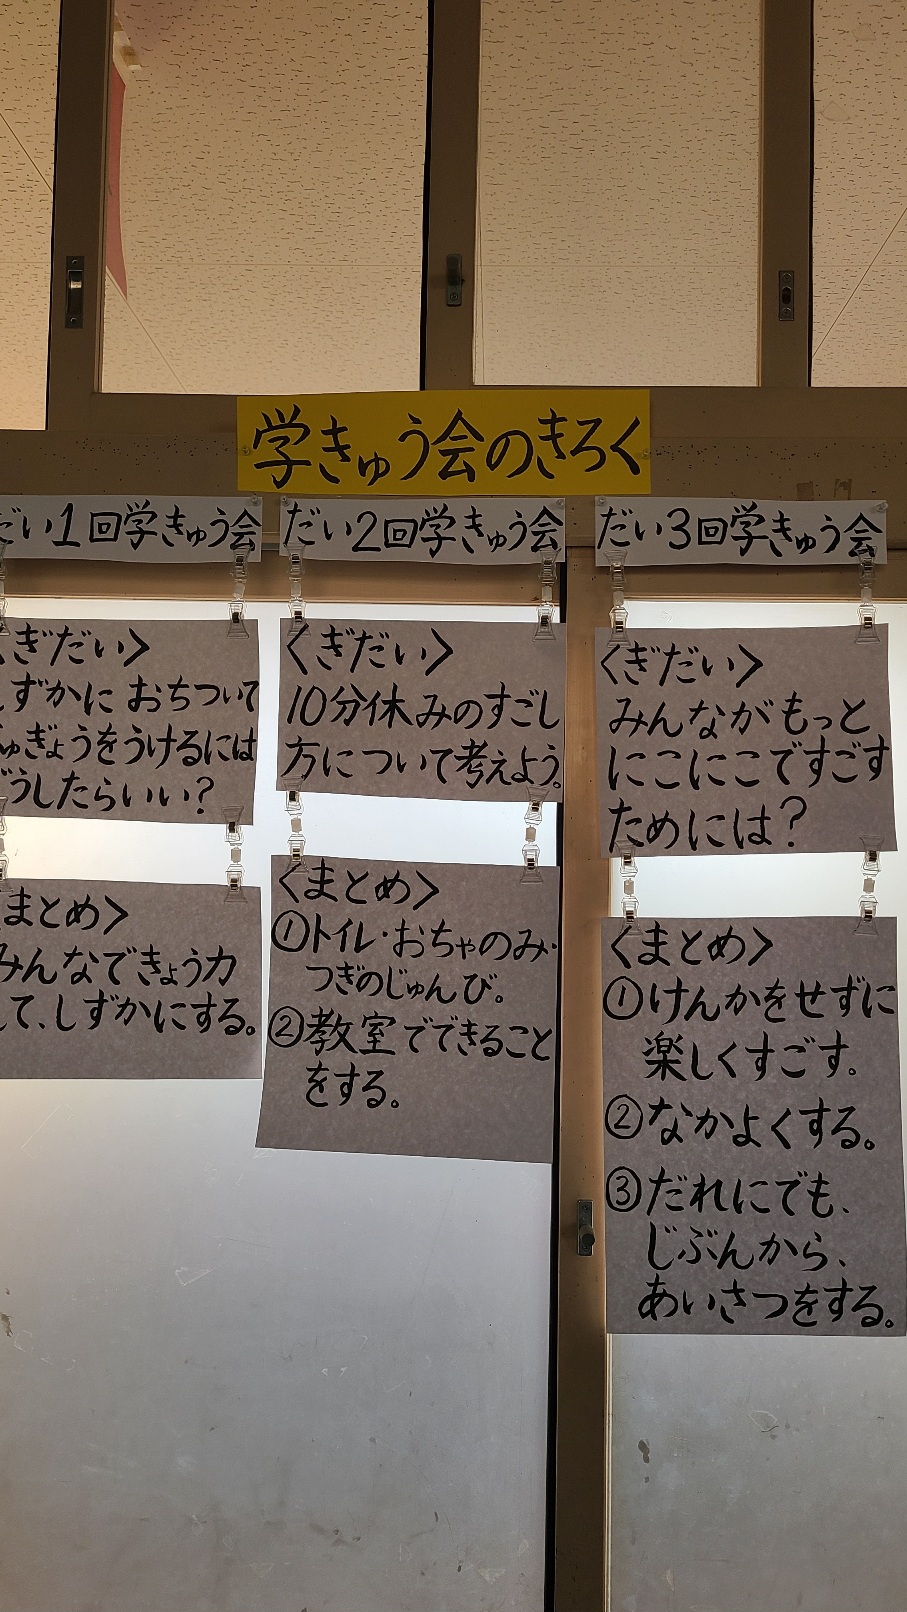 学きゅう会のきろく
だい1回学きゅう会
ぎだい〉
ずかに おちついて
ゅぎょうをうけるには
どうしたらいい?
まとめ〉
みんなできょう力
て、しずかにする。
だい2回学きゅう会
〈ぎだい〉
10分休みのすごし
方について考えよう。
〈まとめ〉
①トイレ・おちゃのみ・
つぎのじゅんび。
②教室でできること
をする。
だい3回学きゅう会
〈ぎだい〉
みんながもっと
にこにこですごす
ためには?
〈まとめ〉
①けんかをせずに
楽しくすごす。
②なかよくする。
③だれにでも、
じぶんから、
あいさつをする。